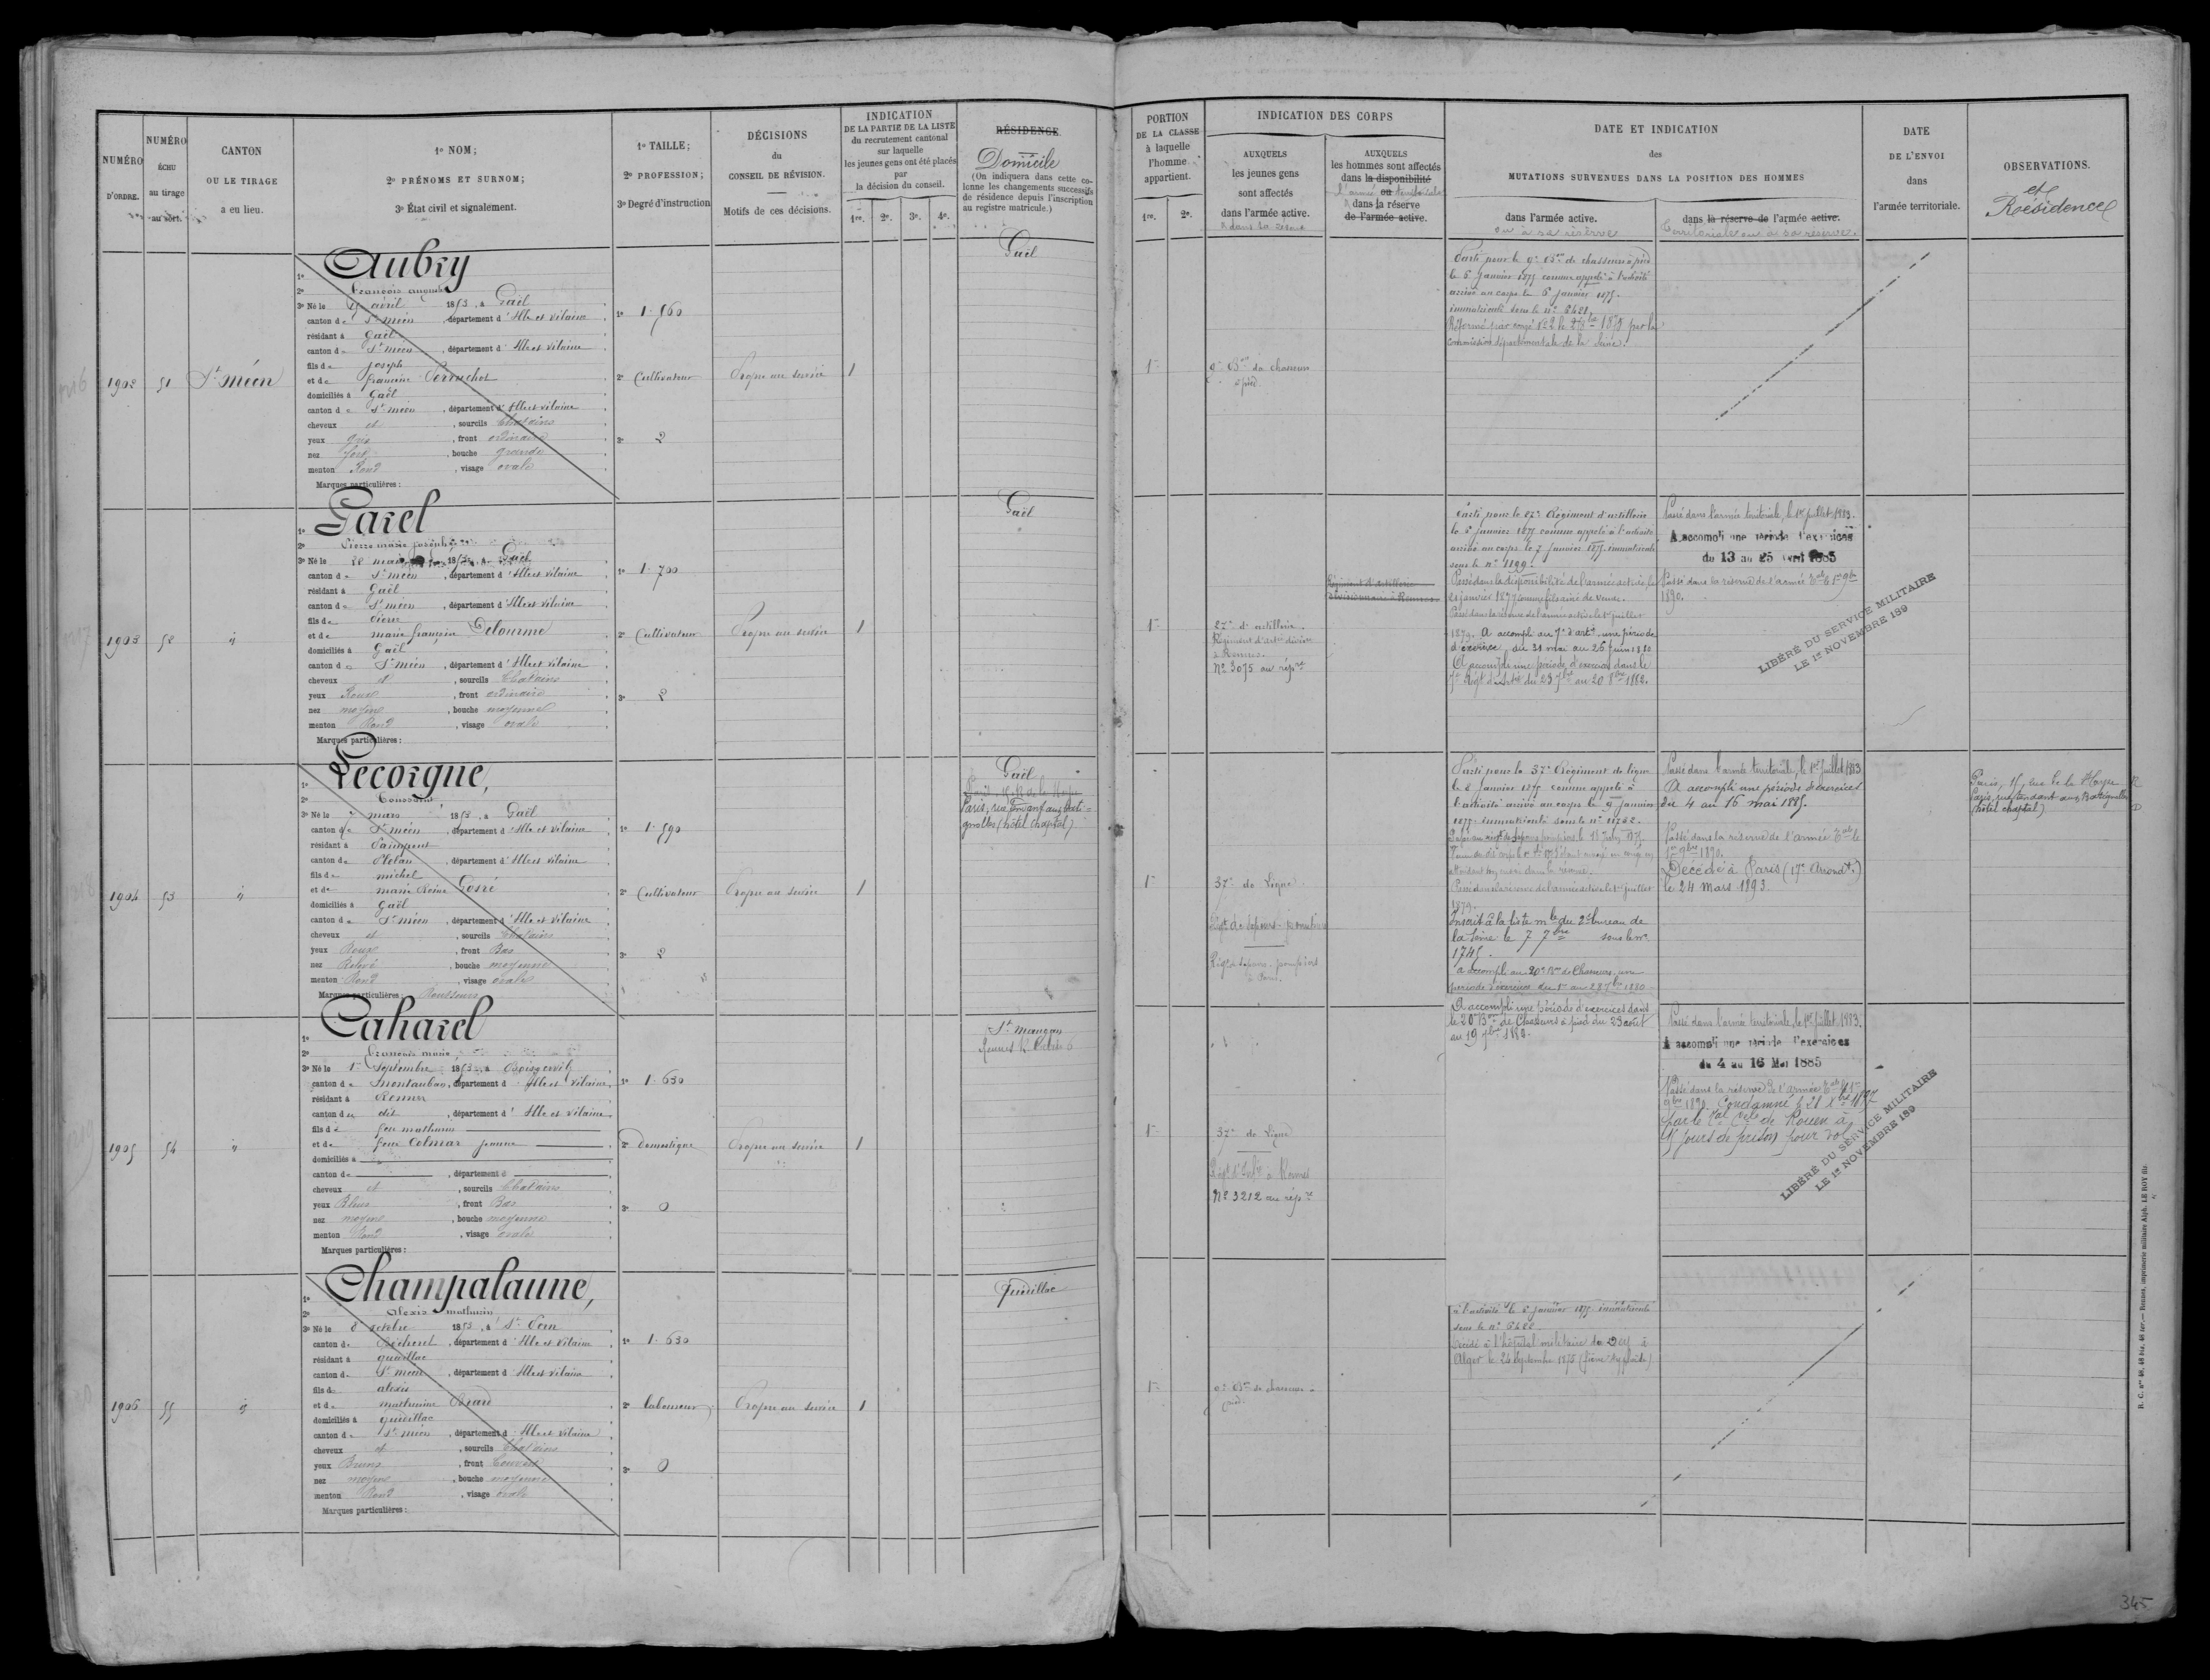 NUMÉRO
D'ORDRE.
NUMÉRO
ÉCHU
au tirage
au sort.
CANTON
OU LE TIRAGE
a eu lieu.
1º NOM;
2º PRÉNOMS ET SURNOM;
3º État civil et signalement.
1º TAILLE;
2º PROFESSION;
3º Degré d'instruction
DÉCISIONS
du
CONSEIL DE RÉVISION.
Motifs de ces décisions.
INDICATION
DE LA PARTIE DE LA LISTE
du recrutement cantonal
sur laquelle
les jeunes gens ont été placés
par
la décision du conseil.
1re. 2e. 3e. 4e.
RÉSIDENCE
Domicile
(On indiquera dans cette co-
lonne les changements successifs
de résidence depuis l'inscription
au registre matricule.)
1902
51
St Méen
1º Aubry
2º François
3º Né le avril 1853, à Gaël
canton de St Méen, département d'Ille et Vilaine
résidant à Gaël
canton de St Méen, département d'Ille et Vilaine
fils de Joseph
et de Francine Perruchot
domiciliés à Gaël
canton de St Méen, département d'Ille et Vilaine
cheveux et, sourcils Chatains
yeux gris, front ordinaire
nez fort, bouche grande
menton Rond, visage ovale
Marques particulières:
1º 1.560
2º Cultivateur
3º 2
Propre au service
1
Gaël
1903
52
"
1º Garel
2º Pierre Marie Joseph
3º Né le 22 mai 1853, à Gaël
canton de St Méen, département d'Ille et Vilaine
résidant à Gaël
canton de St Méen, département d'Ille et Vilaine
fils de Pierre
et de Marie Francine Delourme
domiciliés à Gaël
canton de St Méen, département d'Ille et Vilaine
cheveux et, sourcils Chatains
yeux Roux, front ordinaire
nez moyen, bouche moyenne
menton Rond, visage ovale
Marques particulières:
1º 1.700
2º Cultivateur
3º 2
Propre au service
1
Gaël
1904
53
"
1º Lecorgne,
2º Toussaint
3º Né le mars 1853, à Gaël
canton de St Méen, département d'Ille et Vilaine
résidant à Paimpont
canton de Plélan, département d'Ille et Vilaine
fils de Michel
et de Marie Reine Gosré
domiciliés à Gaël
canton de St Méen, département d'Ille et Vilaine
cheveux et, sourcils Chatains
yeux Roux, front Bas
nez Relevé, bouche moyenne
menton Rond, visage ovale
Marques particulières: Rousseurs
1º 1.590
2º Cultivateur
3º 2
Propre au service
1
Gaël
Paris, rue tendant aux Bati-
gnolles (hôtel Chaptal)
1905
54
"
1º Caharel
2º François Marie
3º Né le 1er Septembre 1853, à Boisgervilly
canton de Montauban, département d'Ille et Vilaine
résidant à Rennes
canton de dit, département d'Ille et Vilaine
fils de feu Mathurin
et de feue Colmar Jeanne
domiciliés à
canton de, département d
cheveux et, sourcils Chatains
yeux Bleus, front Bas
nez moyen, bouche moyenne
menton Rond, visage ovale
Marques particulières:
1º 1.630
2º domestique
3º 0
Propre au service
1
St Maugan
1906
55
"
1º Champalaune,
2º Alexis Mathurin
3º Né le 8 octobre 1853, à St Pern
canton de Bécherel, département d'Ille et Vilaine
résidant à Quédillac
canton de St Méen, département d'Ille et Vilaine
fils de Alexis
et de Mathurine
domiciliés à Quédillac
canton de St Méen, département d'Ille et Vilaine
cheveux et, sourcils Chatains
yeux Bruns, front Couvert
nez moyen, bouche moyenne
menton Rond, visage ovale
Marques particulières:
1º 1.630
2º laboureur
3º 0
Propre au service
1
Quédillac
PORTION
DE LA CLASSE
à laquelle
l'homme
appartient.
1re. 2e.
INDICATION DES CORPS
AUXQUELS
les jeunes gens
sont affectés
dans l'armée active.
& dans la réserve
AUXQUELS
les hommes sont affectés
dans la disponibilité
ou
l'armée territoriale
& dans la réserve
de l'armée active.
DATE ET INDICATION
des
MUTATIONS SURVENUES DANS LA POSITION DES HOMMES
dans l'armée active.
ou à sa réserve
dans la réserve de l'armée active.
territoriale ou à sa réserve.
DATE
DE L'ENVOI
dans
l'armée territoriale.
OBSERVATIONS.
et
Résidence
1re
9e Bon de chasseurs
à pied
Parti pour le 9e Bon de chasseurs à pied
le 5 Janvier 1875 comme appelé à l'activité
arrivé au corps le 6 Janvier 1875.
immatriculé sous le nº 6421.
Réformé par congé Nº 2 le 1878 par la
commission départementale de la Seine.
1re
27e d'artillerie.
Régiment d'artie division
à Rennes.
Nº 3075 au répre
Régiment d'artillerie
divisionnaire à Rennes
Parti pour le 27e Régiment d'artillerie
le 5 janvier 1875 comme appelé à l'activité
arrivé au corps le 7 Janvier 1875, immatriculé
sous le nº 1199.
Passé dans la disponibilité de l'armée active, le
21 janvier 1877, comme fils aîné de veuve.
Passé dans la réserve de l'armée active le 1er juillet
1879. A accompli au 7e d'artie une période
d'exercice du 31 mai au 26 Juin 1880
A accompli une période d'exercice dans le
7e Régt d'Artie du 23 7bre au 20 8bre 1882.
Passé dans l'armée territoriale, le 1er juillet 1883.
A accompli une période d'exercices
du 13 au 25 Avril 1885
Passé dans la réserve de l'armée Tale le 1er 9bre
1890.
LIBÉRÉ DU SERVICE MILITAIRE
LE 1er NOVEMBRE 189
1re
37e de Ligne
Régt de Sapeurs-pompiers
Parti pour le 37e Régiment de ligne
le 8 Janvier 1875 comme appelé à
l'activité arrivé au corps le 9 janvier
1875. immatriculé sous le nº 11762.
Passé dans la réserve de l'armée active le 1er juillet
1879.
Inscrit à la liste mle du 2e bureau de
la Seine le 7 7bre sous le nº
1745.
a accompli au 20e Bon de Chasseurs, une
période d'exercice du 1er au 28 7bre 1880
Passé dans l'armée territoriale, le 1er Juillet 1883
A accompli une période d'exercices
du 4 au 16 mai 1885.
Passé dans la réserve de l'armée Tale le
1er 9bre 1890.
Décédé à Paris (17e Arrondt.)
le 24 Mars 1893.
Paris, 15, rue de la Harpe
Paris, rue tendant aux Batignolles
(hôtel chaptal)
R
D
A accompli une période d'exercices dans
le 20e Bon de Chasseurs à pied du 23 août
au 19 7bre 1882.
1re
37e de Ligne
Régt d'Infie à Rennes
Nº 3212 au répre
Passé dans l'armée territoriale, le 1er Juillet 1883.
A accompli une période d'exercices
du 4 au 16 Mai 1885
Passé dans la réserve de l'armée Tale le 1er
9bre 1890. Condamné le 21 Xbre 1897
par le Tal Cel de Rouen à
15 jours de prison pour vol
LIBÉRÉ DU SERVICE MILITAIRE
LE 1er NOVEMBRE 189
1re
9e Bon de chasseurs à
pied.
à l'activité le 5 janvier 1875 immatriculé
sous le nº 6422.
Décédé à l'hôpital militaire du Dey à
Alger le 24 Septembre 1875 (fièvre typhoïde)
R. C. nos 48, 48 bis, 48 ter.— Rennes, imprimerie militaire Alph. LE ROY fils
345